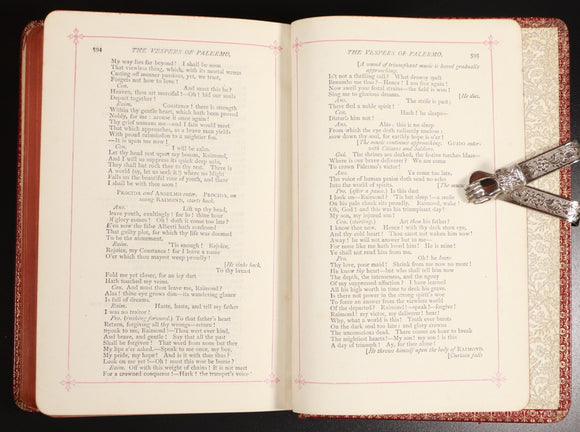 594
THE VESPERS OF PALERMO.
My way lies far beyond! I shall be soon
That viewless thing, which, with its mortal weeds
Casting off meaner passions, yet, we trust,
Forgets not how to love!
Con. And must this be?
Heaven, thou art merciful!—Oh! bid our souls
Depart together!
Raim. Constance! there is strength
Within thy gentle heart, which hath been proved
Nobly, for me: arouse it once again!
Thy grief unmans me—and I fain would meet
That which approaches, as a brave man yields
With proud submission to a mightier foe.
—It is upon me now!
Con. I will be calm.
Let thy head rest upon my bosom, Raimond,
And I will so suppress its quick deep sobs,
They shall but rock thee to thy rest. There is
A world (ay, let us seek it!) where no blight
Falls on the beautiful rose of youth, and there
I shall be with thee soon!
PROCIDA and ANSELMO enter. PROCIDA, on
seeing RAIMOND, starts back.
Ans. Lift up thy head,
Brave youth, exultingly! for lo! thine hour
of glory comes! Oh! doth it come too late?
E'en now the false Alberti hath confessed
That guilty plot, for which thy life was doomed
To be the atonement.
Raim. 'Tis enough! Rejoice,
Rejoice, my Constance! for I leave a name
O'er which thou mayest weep proudly!
[He sinks back.
To thy breast
Fold me yet closer, for an icy dart
Hath touched my veins.
Con. And must thou leave me, Raimond?
Alas! thine eye grows dim—its wandering glance
Is full of dreams.
Raim. Haste, haste, and tell my father
I was no traitor!
Pro. (rushing forward.) To that father's heart
Return, forgiving all thy wrongs—return!
Speak to me, Raimond!—Thou wert ever kind,
And brave, and gentle! Say that all the past
Shall be forgiven! That word from none but thee
My lips e'er asked.—Speak to me once, my boy,
My pride, my hope! And is it with thee thus?
Look on me yet!—Oh! must this woe be borne?
Raim. Off with this weight of chains! It is not meet
For a crowned conqueror!—Hark! the trumpet's voice!
THE VESPERS OF PALERMO.
595
[A sound of triumphant music is heard gradually
approaching.
Is't not a thrilling call? What drowsy spell
Benumbs me thus?—Hence! I am free again!
Now swell your festal strains—the field is won!
Sing me to glorious dreams. [He dies.
Ans. The strife is past;
There fled a noble spirit!
Con. Hush! he sleeps—
Disturb him not!
Ans. Alas! this is no sleep
From which the eye doth radiantly unclose:
bow down thy soul, for earthly hope is o'er!
[The music continues approaching. GUIDO enters
with Citizens and Soldiers.
Gui. The shrines are decked, the festive torches blaze—
Where is our brave deliverer? We are come
To crown Palermo's victor!
Ans. Ye come too late.
The voice of human praise doth send no echo
Into the world of spirits. [The music
Pro. (after a pause.) Is this dust
I look on—Raimond! 'Tis but sleep!—a smile
On his pale cheek sits proudly. Raimond, wake!
Oh, God! and this was his triumphant day!
My son, my injured son!
Con. (starting.) Art thou his father?
I know thee now.—Hence! with thy dark stern eye,
And thy cold heart! Thou canst not wake him now!
Away! he will not answer but to me—
For none like me hath loved him! He is mine!
Ye shall not rend him from me.
Pro. Oh! he knew
Thy love, poor maid! Shrink from me now no more!
He knew thy heart—but who shall tell him now
The depth, the intenseness, and the agony
Of my suppressed affection? I have learned
All his high worth in time to deck his grave.
Is there not power in the strong spirit's woe
To force an answer from the viewless world
Of the departed? Raimond!—Speak!—forgive!
Raimond! my victor, my deliverer! hear!
Why, what a world is this! Truth ever bursts
On the dark soul too late: and glory crowns
The unconscious dead. There comes an hour to break
The mightiest hearts!—My son! my son! is this
A day of triumph! Ay, for thee alone!
[He throws himself upon the body of RAIMOND.
[Curtain falls